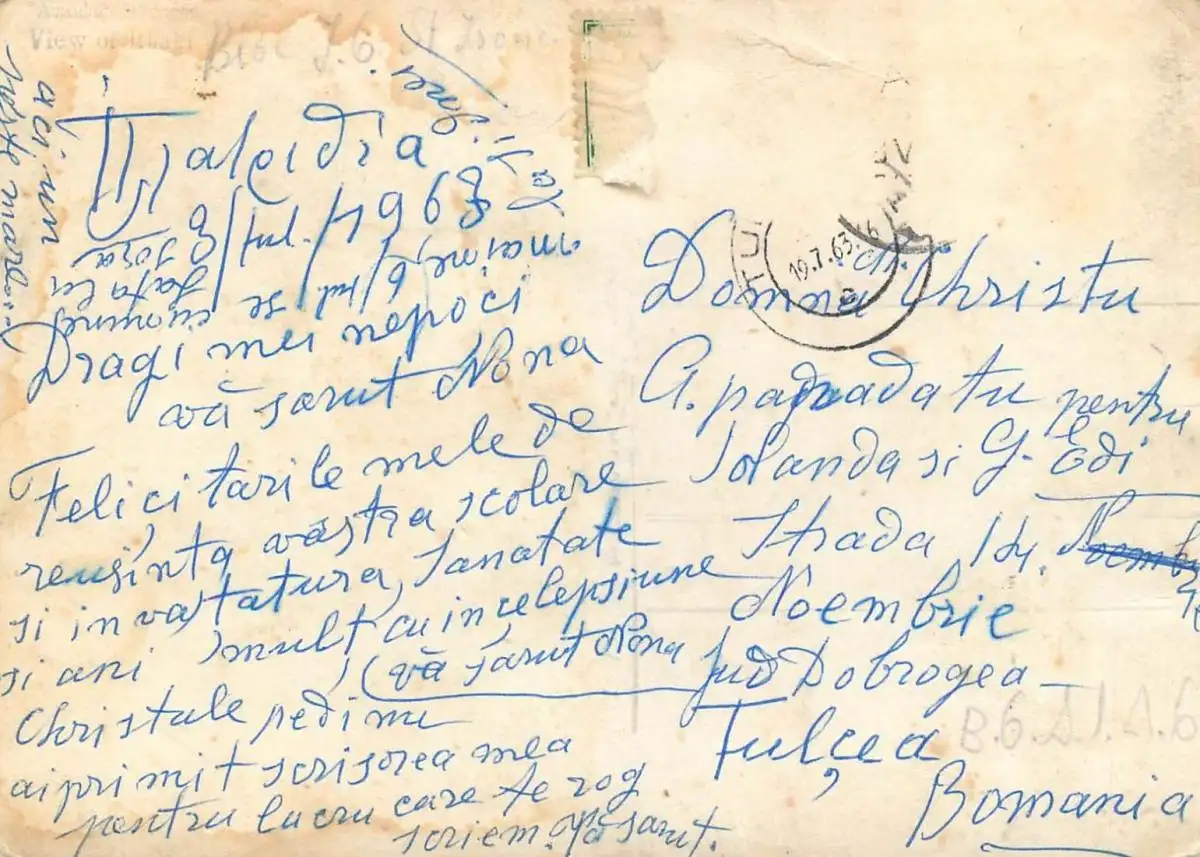 View of
Ţalpidia
8/Iul./1963
Dragi mei nepoci
vă sarut Nona
Felicitarile mele de
reusinta văstra scolare
si invatatura, Sanatate
si ani mult cu incelepsiune
(vă sarut Nona
Christule pedimu
ai primit scrisorea mea
pentru lucru care te rog
scriem. Vă sarut.
aci un
TUL
19.7.63.16
Domnu Christu
A. papadatu pentru
Iolanda si G. Edi
Strada 14. Noembrie
Noembrie
Jud Dobrogea
Tulcea
Romania
B.6.